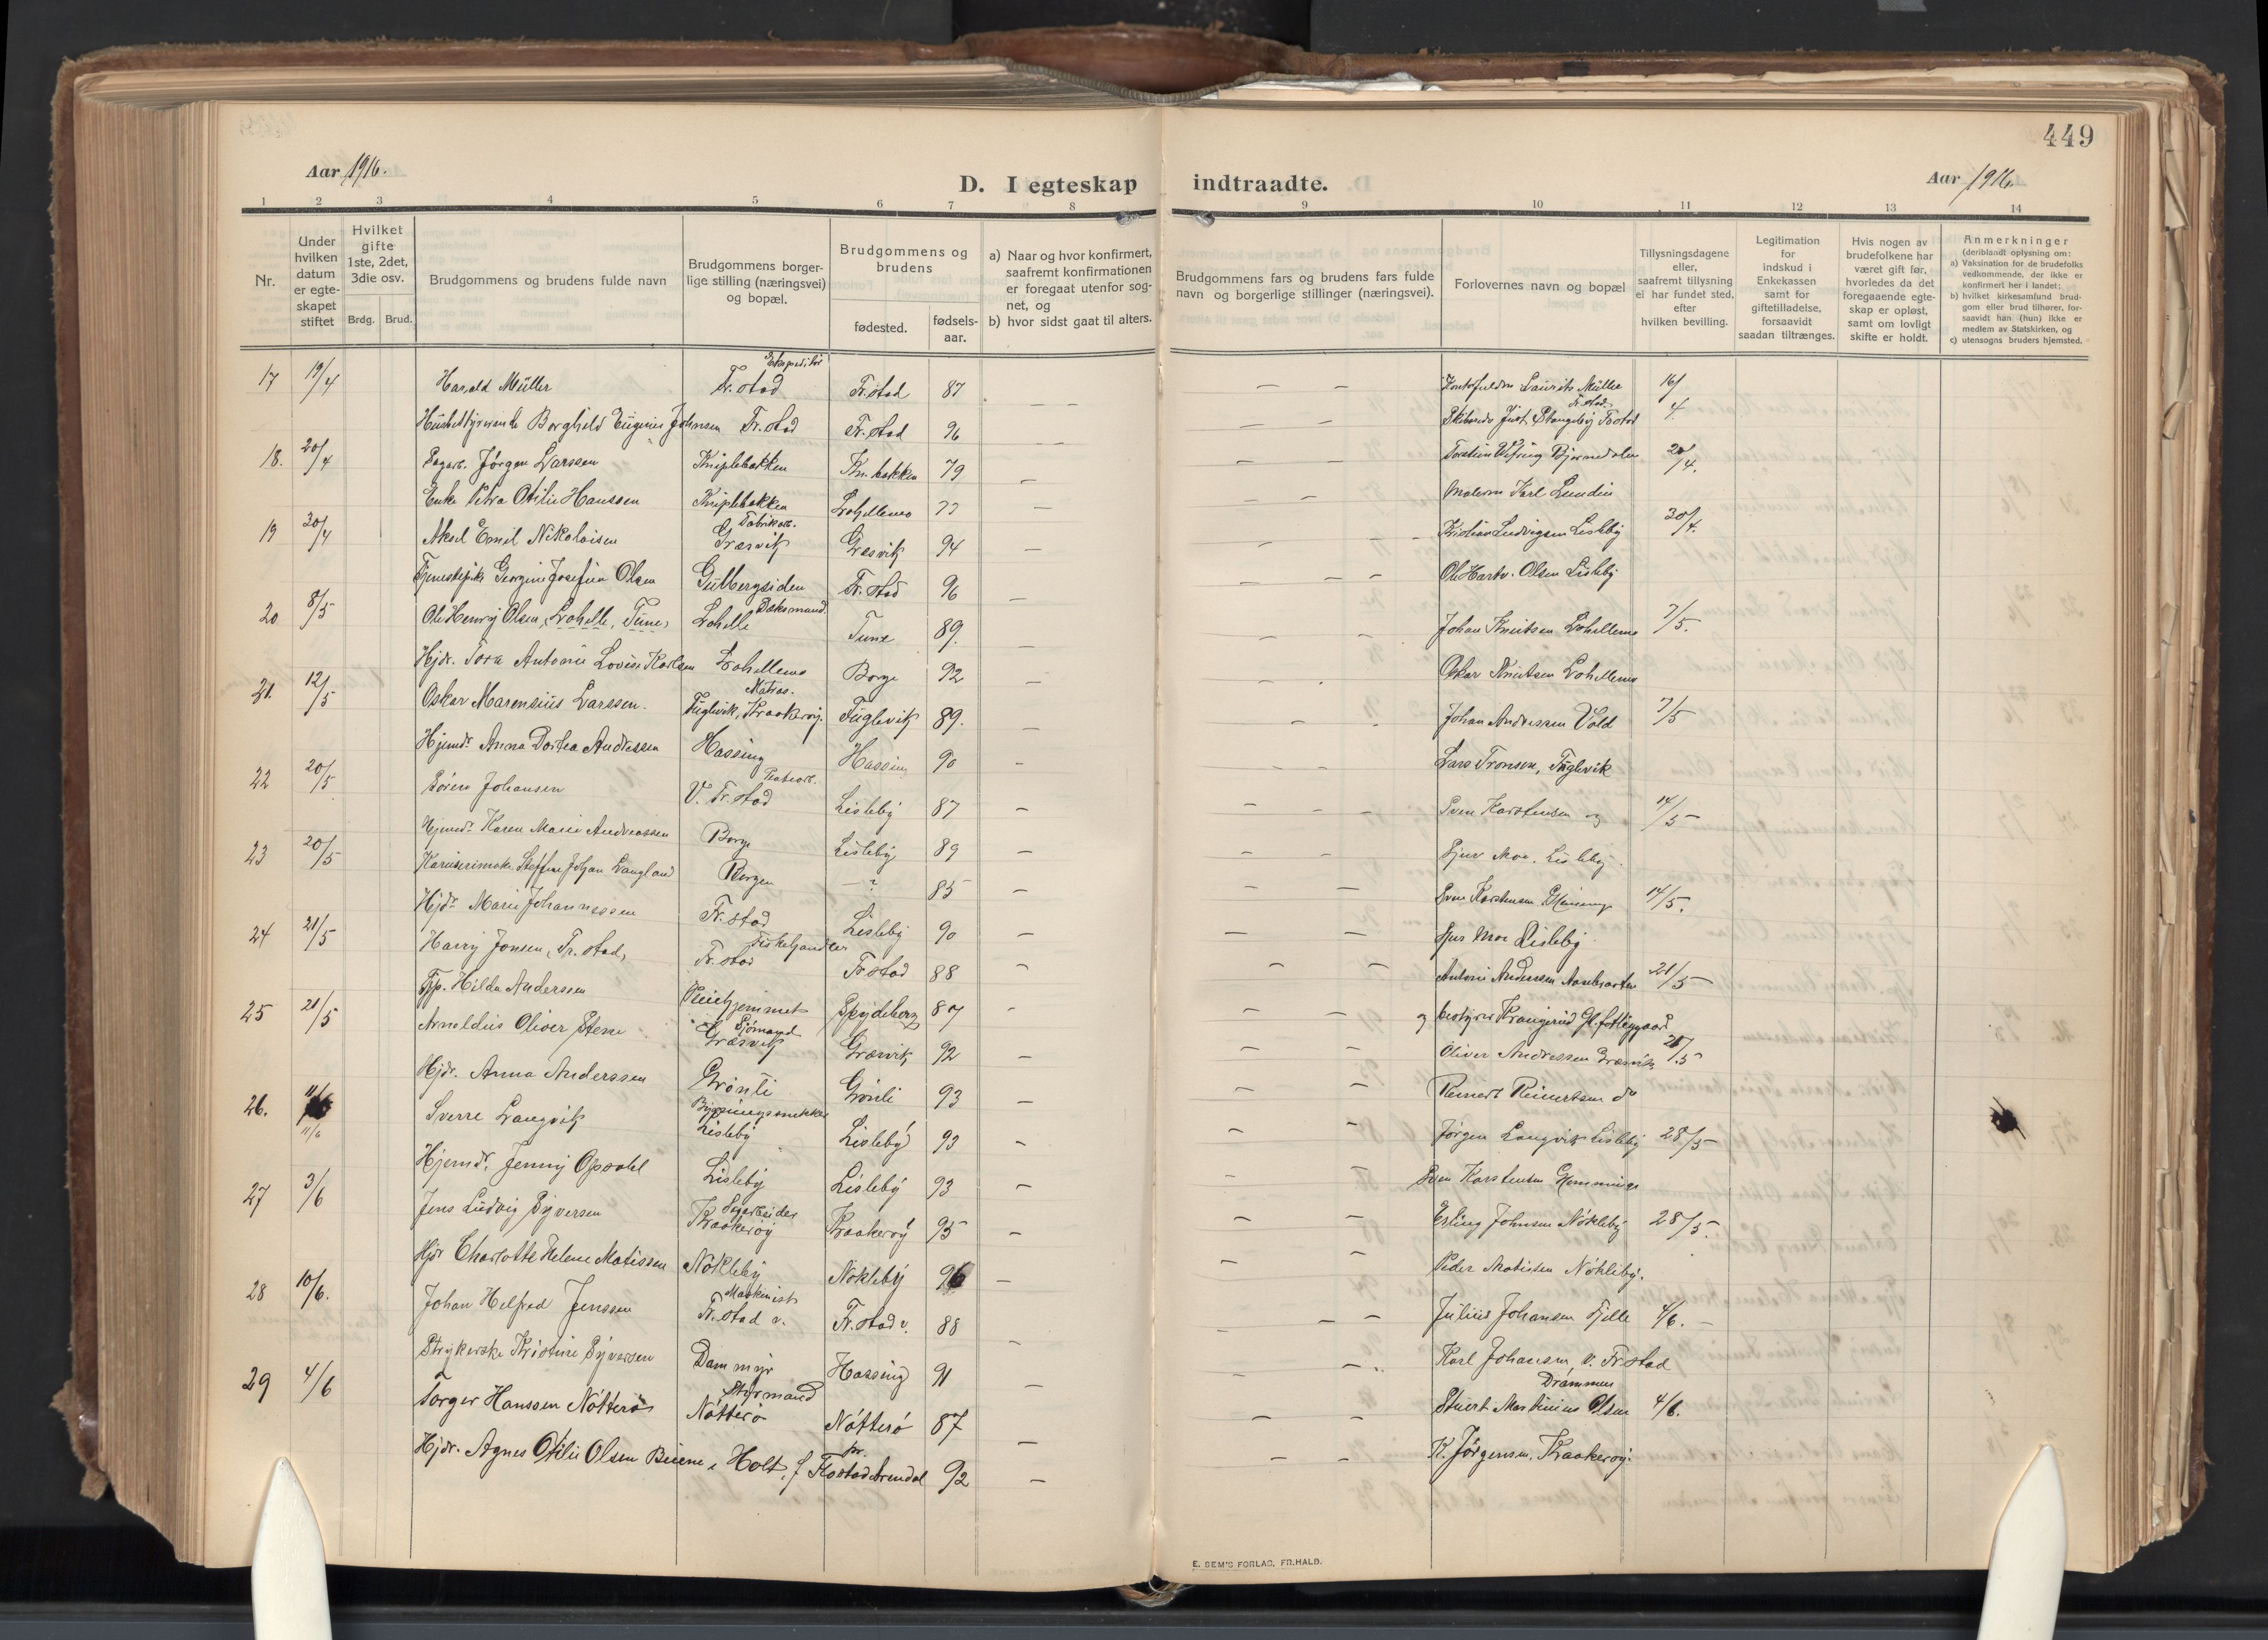 449
Aar 1916.
D. I egteskap indtraadte.
Aar 1916.
1 2 3 4 5 6 7 8 9 10 11 12 13 14
Nr.
Under hvilken datum er egteskapet stiftet
Hvilket gifte 1ste, 2det, 3die osv.
Brdg. Brud.
Brudgommens og brudens fulde navn
Brudgommens borgerlige stilling (næringsvei) og bopæl.
Brudgommens og brudens
fødested. fødselsaar.
a) Naar og hvor konfirmert, saafremt konfirmationen er foregaat utenfor sognet, og
b) hvor sidst gaat til alters.
Brudgommens fars og brudens fars fulde navn og borgerlige stillinger (næringsvei).
Forlovernes navn og bopæl
Tillysningsdagene eller, saafremt tillysning ei har fundet sted, efter hvilken bevilling.
Legitimation for indskud i Enkekassen samt for giftetilladelse, forsaavidt saadan tiltrænges.
Hvis nogen av brudefolkene har været gift før, hvorledes da det foregaaende egteskap er opløst, samt om lovligt skifte er holdt.
Anmerkninger
(deriblandt oplysning om:
a) Vaksination for de brudefolks vedkommende, der ikke er konfirmert her i landet;
b) hvilket kirkesamfund brudgom eller brud tilhører, forsaavidt han (hun) ikke er medlem av Statskirken, og
c) utensogns bruders hjemsted.
17 19/4 Harald Müller Ekspeditør Fr.stad Fr.stad 87 — — Laurits Müller Fr.stad 16/4
Borghild Eugenie Johnsen Fr.stad Fr.stad 96 — — Just Stangeby Fr.stad
18. 20/4 Sagarb. Jørgen Larssen Kniplebakken Kn.bakken 79 — — Bjørnedalen 20/4.
Enke Petra Otilie Hanssen Kniplebakken Lohellene 77 — — Malerm. Karl Lundin
19 30/4 Aksel Emil Nikolaisen Fabrikarb. Græsvik Græsvik 94 — — Kristian Ludvigsen Lisleby 30/4.
Tjenestepike Georgine Josefine Olsen Gulbergsiden Fr.stad 96 — — Ole Hartv. Olsen Lisleby
20 8/5 Ole Henry Olsen, Lohelle, Tune, Lohelle Tune 89. — — Johan Knutsen Lohellene 7/5.
Hjdr. Tora Antonie Lovise Karlsen Lohellene Borge 92 — — Oskar Knutsen Lohellene
21. 12/5 Oskar Marensius Larssen. Matros. Fuglevik, Kraakerøy. Fuglevik 89. — — Johan Andressen Vold 7/5
Hjemdr. Anna Dortea Andressen Hassing Hassing 90 — — Lars Tronsen, Fuglevik
22 20/5 Søren Johansen V. Fr.stad Lisleby 87 — — Sven Karstensen og 14/5
Hjemdr. Karen Marie Andreassen Borge Lisleby 89 — — Sjur Moe. Lisleby.
23 20/5 Steffen Johan Langland Bergen — ? 85 — — Sven Karstensen 14/5.
Hjdr. Marie Johannessen Fr.stad Lisleby 90 — — Sjur Moe Lisleby
24 21/5 Harry Jonsen, Fr.stad, Fiskehandler Fr.stad Fr.stad 88 — — Antoni Andersen 21/5
Tjp. Hilda Anderssen Pleiehjemmet Spydeberg 87 — — og bestyrer
25 21/5 Arnoldus Oliver Stene Sjømand Græsvik Græsvik 92 — — Oliver Andressen Græsvik 21/5
Hjdr. Anna Anderssen Grønli Grønli 93 — — Reinert Reinertsen do
26. 11/6 Sverre Langvik Bygningssnekker Lisleby Lisleby 93 — — Jørgen Langvik Lisleby 28/5
Hjemdr. Jenny Opsahl Lisleby Lisleby 93 — — Sven Karstensen
27 3/6 Jens Ludvig Syversen Sagarbeider Kraakerøy Kraakerøy 95 — — Erling Johnsen Nøkleby 28/5.
Hjdr Charlotte Helene Matissen Nøkleby Nøkleby 96 — — Peder Matissen Nøkleby.
28 10/6. Johan Helfred Jenssen Maskinist Fr.stad v. Fr.stad v. 88 — — Julius Johansen Fjelle 4/6.
Strykerske Kristine Syversen Dammyr Hassing 91 — — Karl Johansen, V. Fr.stad
29 4/6 Torger Hanssen Nøtterø Styrmand Nøtterø Nøtterø 87 — — Martinius Olsen Drammen 4/6.
Hjdr. Agnes Otilie Olsen Beiene i Holt, f Flostad pr. Arendal 92 — — K. Jørgensen, Kraakerøy.
E. SEM'S FORLAG, FR.HALD.